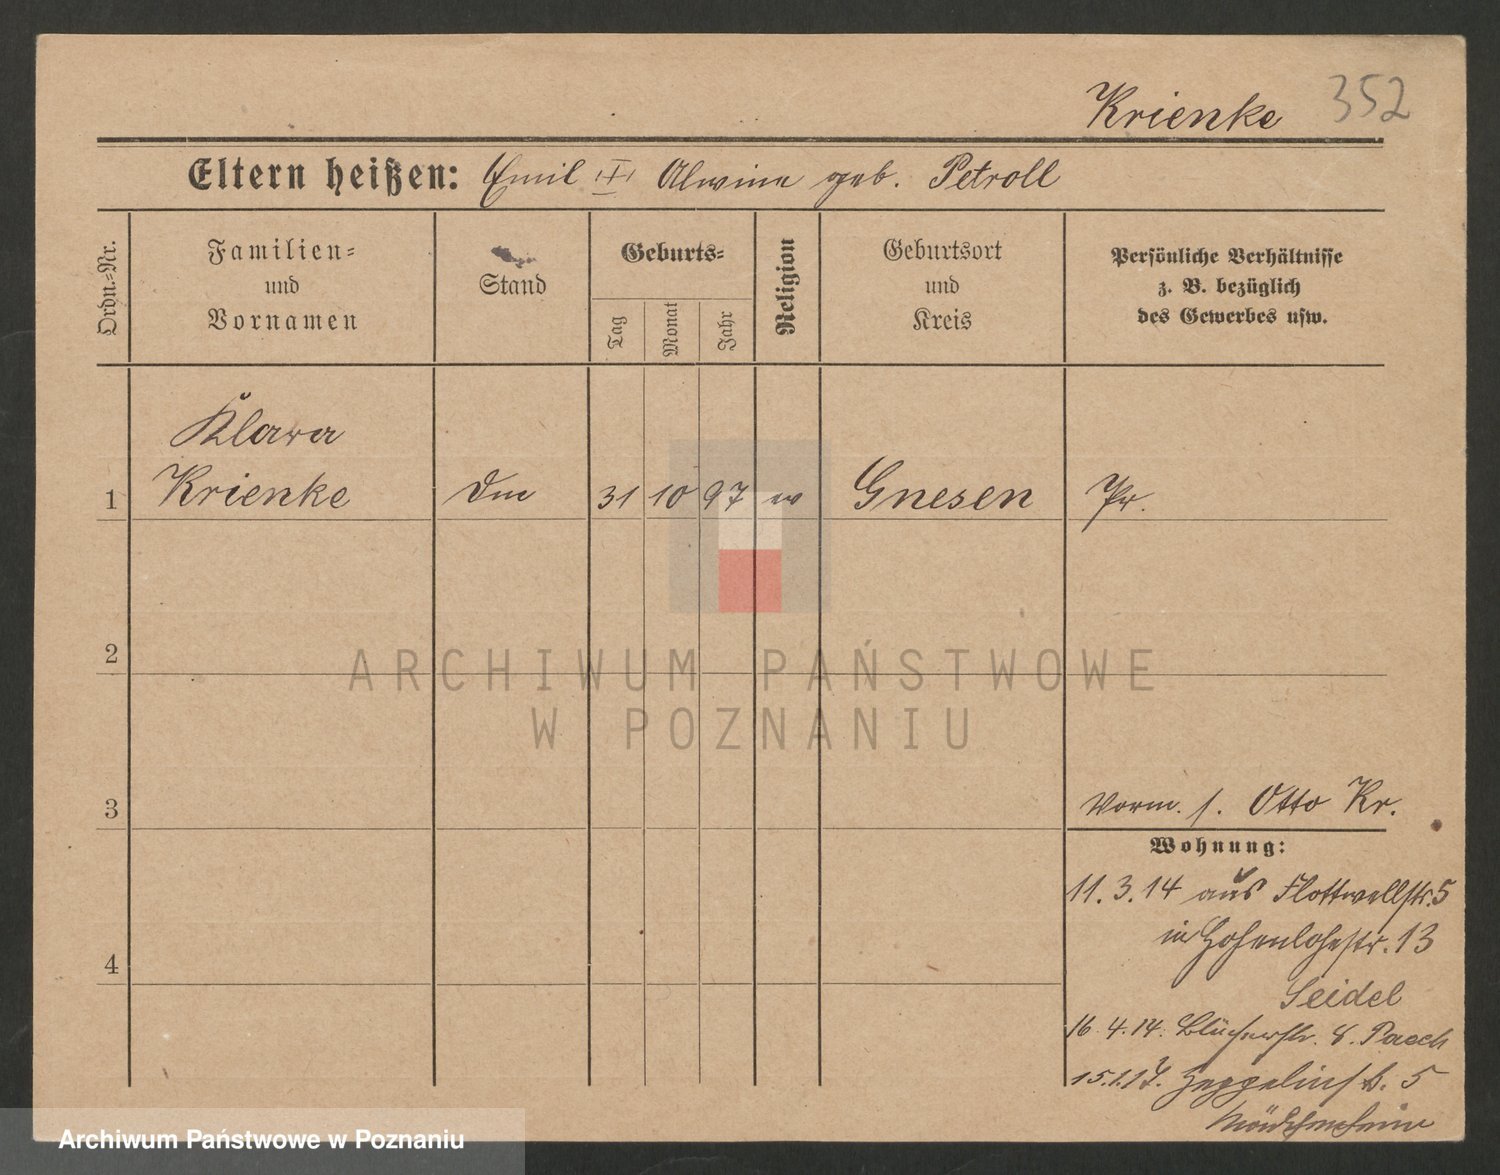 Krienke 352
Eltern heißen: Emil III Alwine geb. Petroll
Ordn.-Nr.
Familien-
und
Vornamen
Stand
Geburts-
Tag
Monat
Jahr
Religion
Geburtsort
und
Kreis
Persönliche Verhältnisse
z. B. bezüglich
des Gewerbes usw.
Klara
1 Krienke 31 10 97 ev Gnesen Pr.
2
ARCHIWUM PAŃSTWOWE
W POZNANIU
3
Vorm. s. Otto Kr.
Wohnung:
11.3.14 aus Flottwellstr. 5
in Hohenlohestr. 13
4
Seidel
16.4.14. Blücherstr. 8. Paech
15.1.17. Zeppelinstr. 5
Mädchenheim
Archiwum Państwowe w Poznaniu